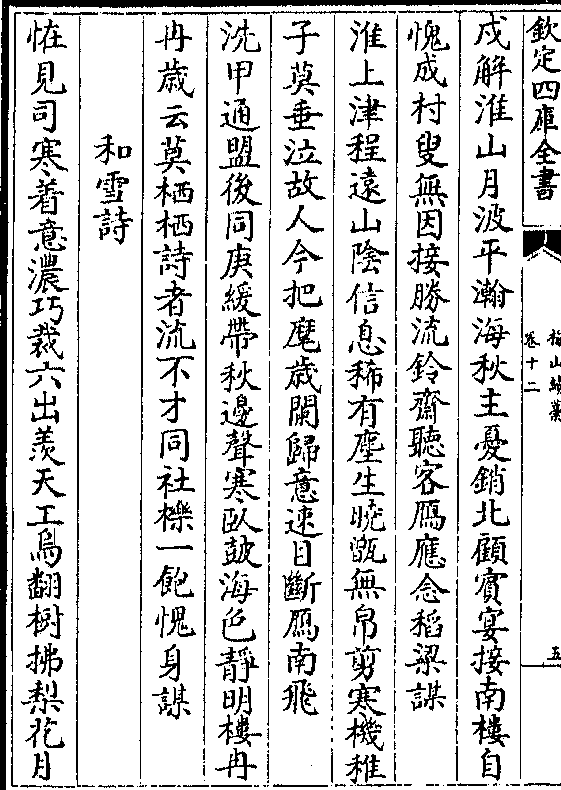 欽定四庫全書
梅山續藁
卷十二
五
戍解淮山月波平瀚海秋主憂銷北顧賓宴接南樓自
愧成村叟無因接勝流鈴齋聽客鴈應念稻粱謀
淮上津程遠山陰信息稀有塵生曉甑無帛剪寒機稚
子莫垂泣故人今把麾歲闌歸意速目斷鴈南飛
洗甲通盟後同庚緩帶秋邊聲寒臥鼓海色靜明樓冉
冉歲云莫栖栖詩者流不才同社櫟一飽愧身謀
和雪詩
恠見司寒着意濃巧裁六出羨天工烏翻樹拂梨花月